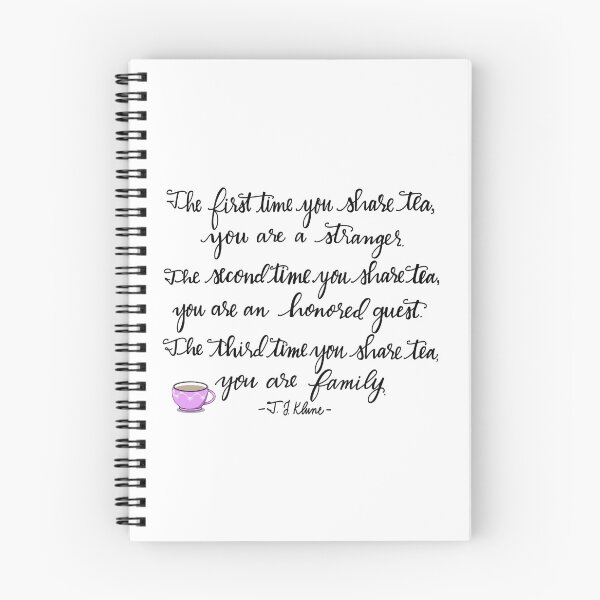 The first time you share tea,
you are a stranger.
The second time you share tea,
you are an honored guest.
The third time you share tea,
you are family.
- T. J Klune -